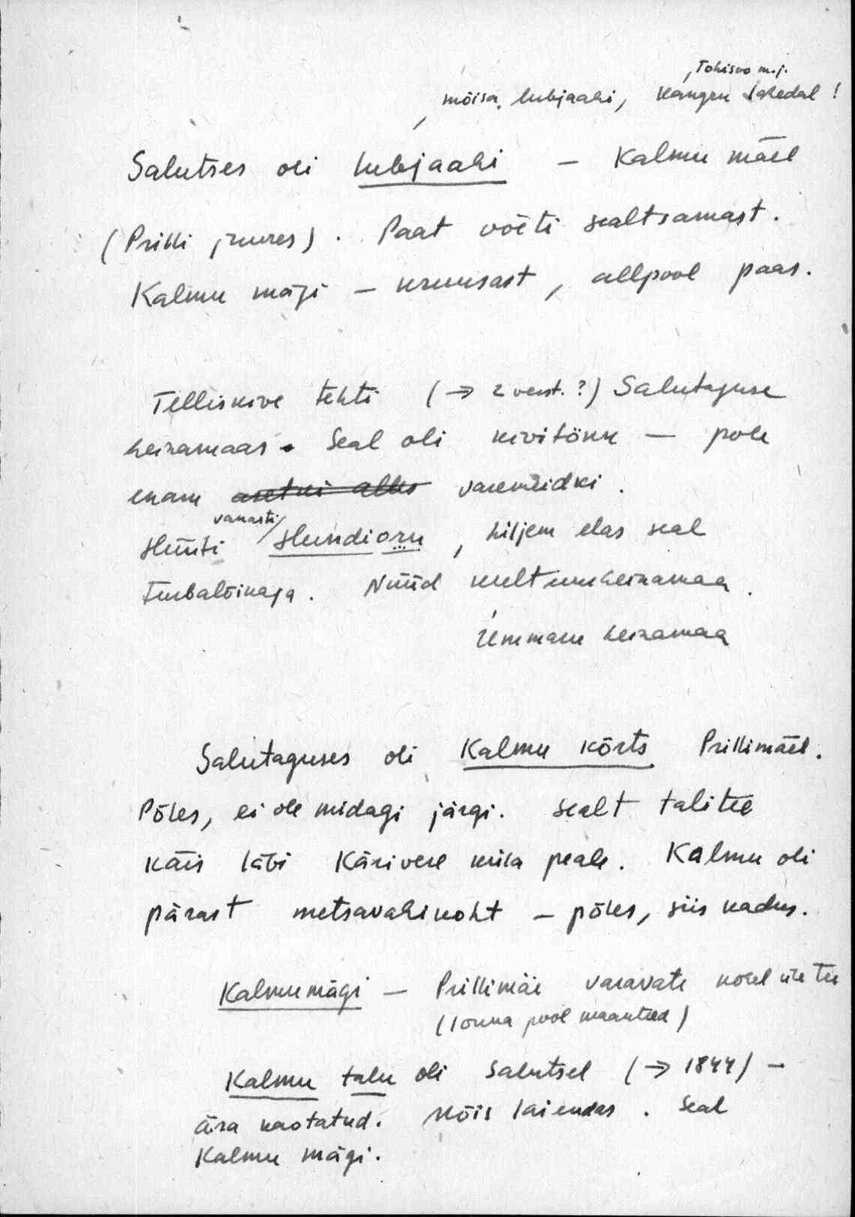 , Tohisoo m.j.
, mõisa lubjaahi, Kangru lakedal!
Salutses oli lubjaahi – Kalmu mäel
(Prilli juures). Paat võeti sealtsamast.
Kalmu mägi – kruusast, allpool paas.
Telliskive tehti (→ 2 verst.?) Salutaguse
heinamaas. Seal oli kivitõnu – pole
enam asetki alles varemeidki.
vanasti
Hüüti Hundioru, hiljem elas seal
turbalõikaja. Nüüd kultuurheinamaa.
Ümmaru heinamaa
Salutaguses oli Kalmu kõrts Prillimäel.
Põles, ei ole midagi järgi. Sealt talitee
käis läbi Kärivere küla peale. Kalmu oli
pärast metsavahikoht – põles, siis kadus.
Kalmumägi – Prillimäe väravate kohal üle tee
(lõuna pool maanteed)
Kalmu talu oli Salutsel (→ 1844) –
ära kaotatud. Mõis laiendas. Seal
Kalmu mägi.